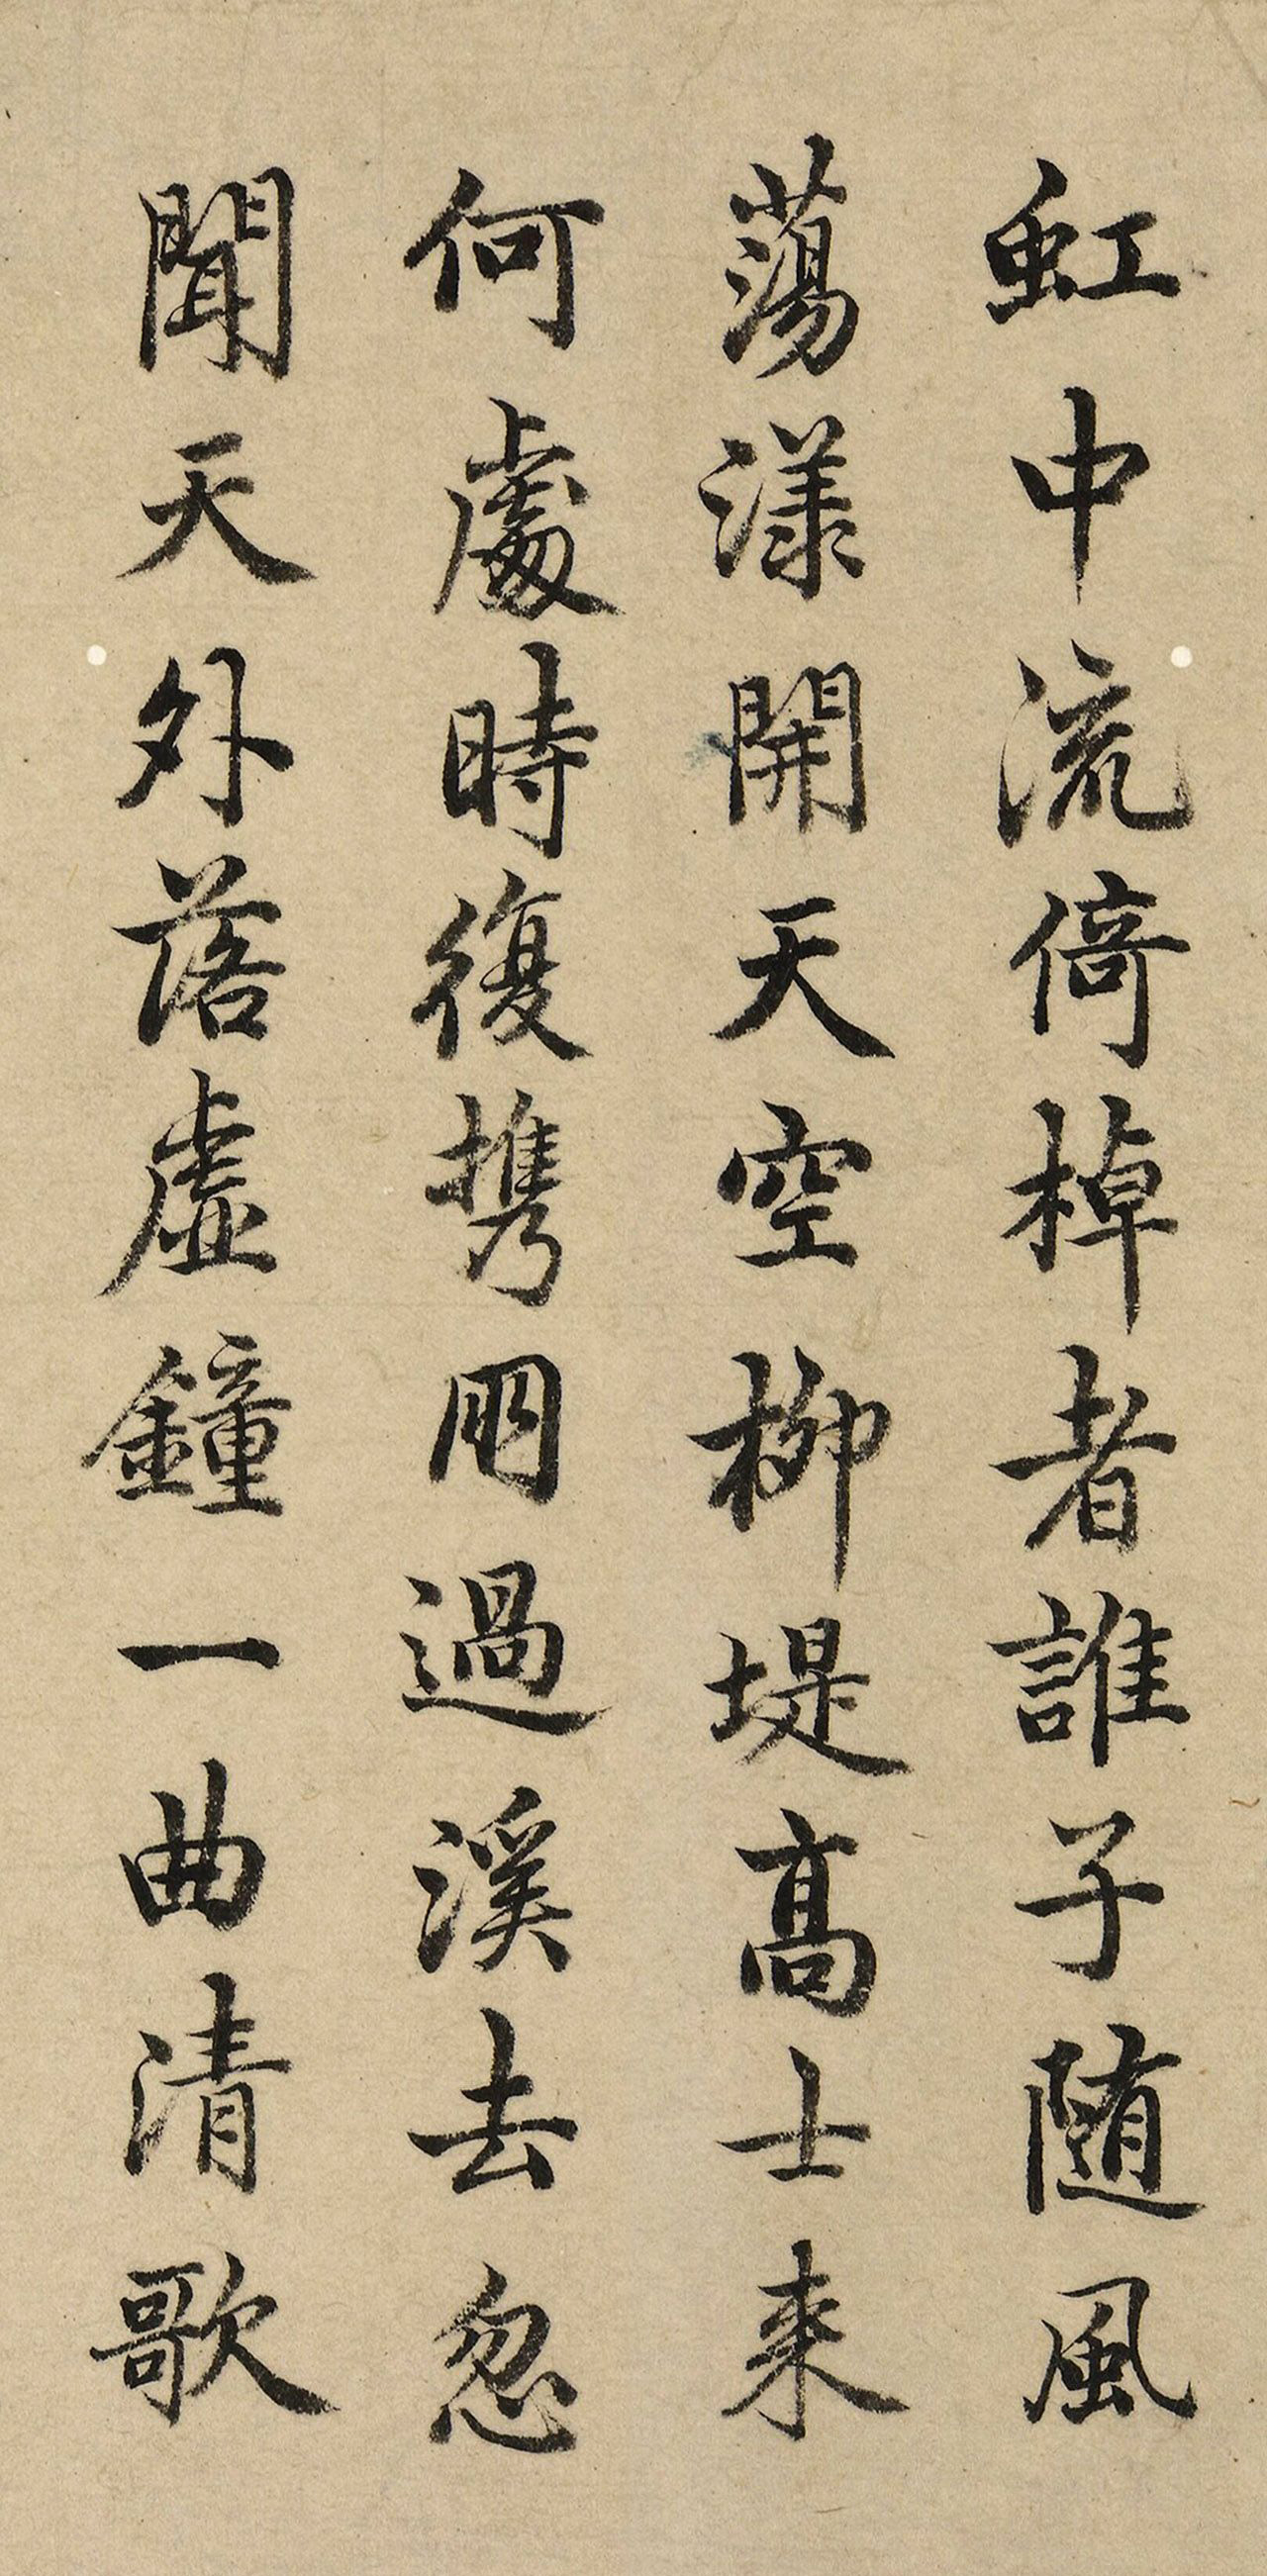 虹中流倚棹者誰子随風
蕩漾開天空柳堤高士来
何處時復携朋過溪去忽
聞天外落虛鐘一曲清歌